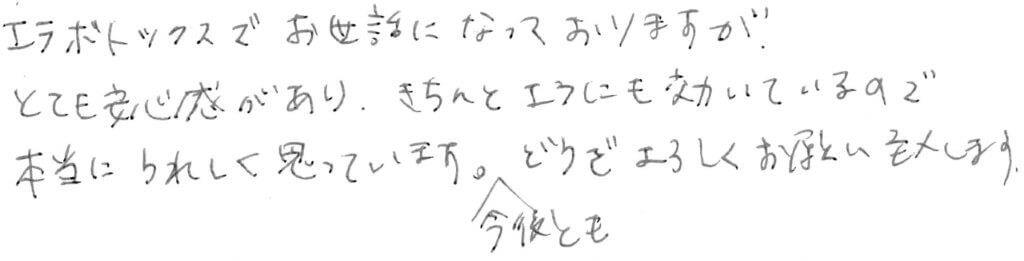 エラボトックスでお世話になっておりますが、
とても安心感があり、きちんとエラにも効いているので
本当にうれしく思っています。どうぞよろしくお願い致します。
今後とも